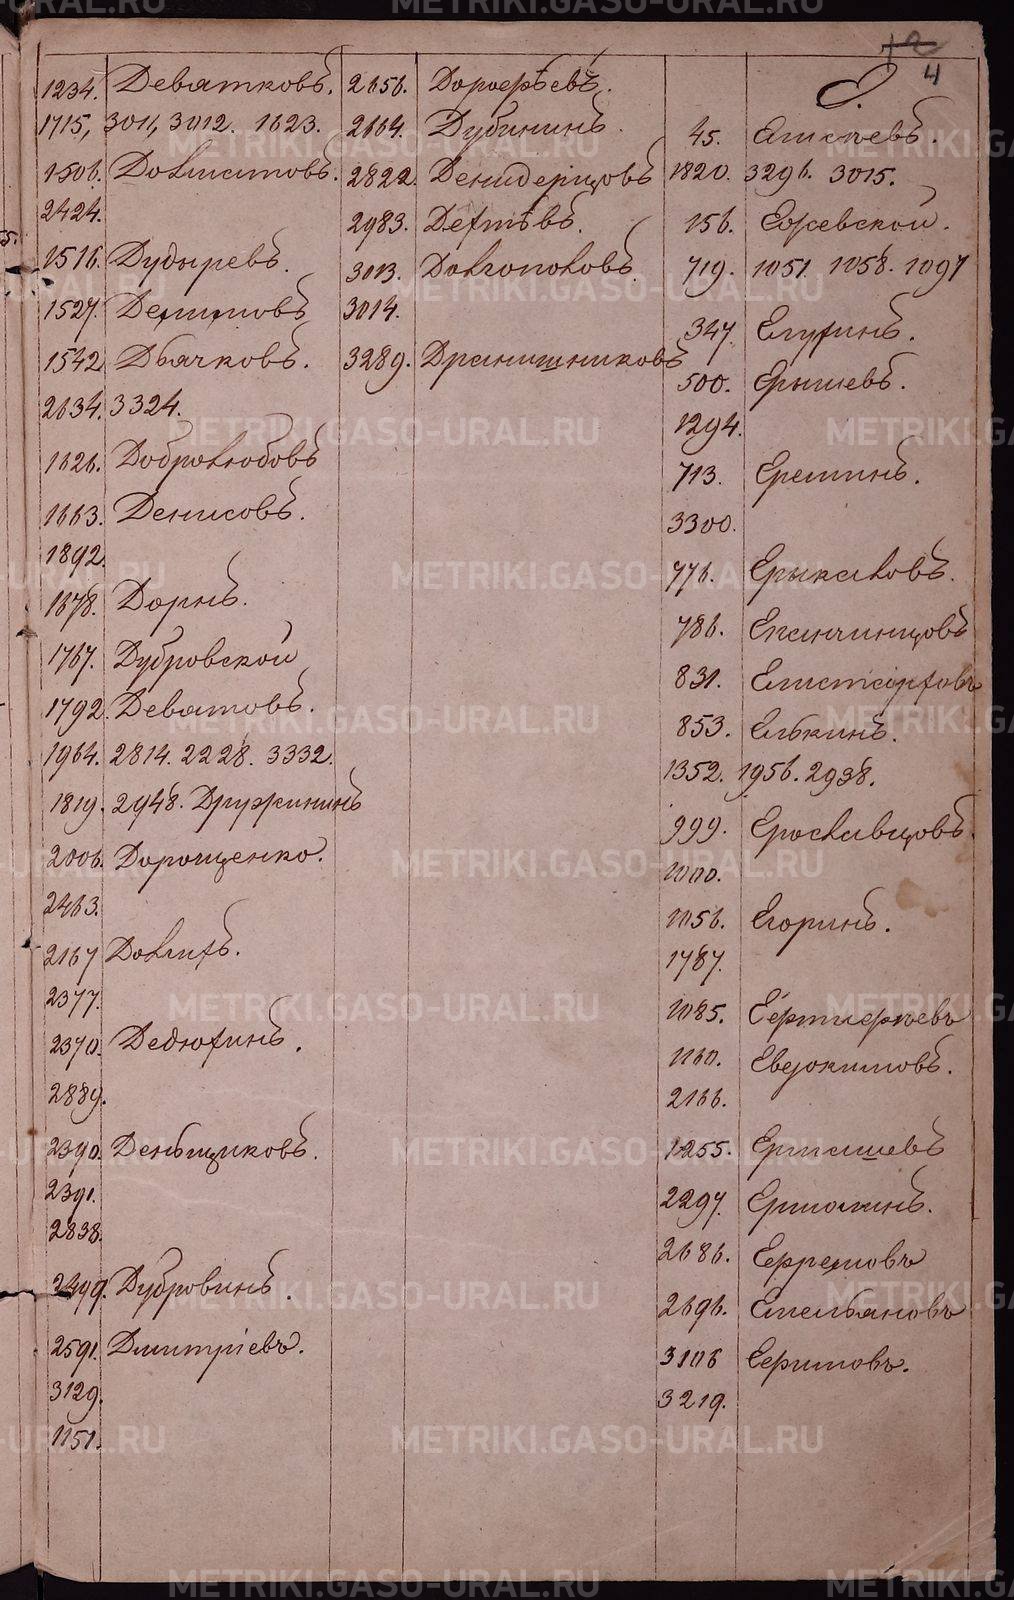 4
1234. Девятковъ.
1715, 3011, 3012. 1623.
1506. Долматовъ.
2424.
1516. Дудыревъ.
1527. Демитовъ
1542 Дьячковъ.
2634. 3324.
1626. Добролюбовъ
1663. Денисовъ.
1892.
1678. Дорнъ.
1767. Дубровской
1792. Девятовъ.
1964. 2814. 2228. 3332.
1819. 2948. Дружининъ
2006. Дорошенко.
2463.
2167 Долгихъ.
2377.
2370. Дедюхинъ.
2889.
2390. Деньщиковъ.
2391.
2838.
2499. Дубровинъ.
2591. Дмитріевъ.
3129.
1151.
2656.
2664. Дубининъ.
2822
2983.
3013. Долгополовъ
3014.
3289. Дранишниковъ
Е.
45. Елисѣевъ.
1820. 3296. 3015.
156. Ежевской.
719. 1051. 1058. 1097
347. Елухинъ.
500. Ерышевъ.
1294.
713. Ереминъ.
3300.
776. Ерыкаловъ.
786. Епанчинцовъ
831. Елистарховъ
853. Елькинъ.
1352. 1956. 2938.
999. Ерославцовъ.
1000.
1056. Егоринъ.
1787.
1085.
1160. Евдокимовъ.
2166.
1255. Ермашевъ
2297. Ермолинъ.
2686. Ефремовъ
2696. Емельяновъ
3106 Ефимовъ.
3219.
METRIKI.GASO-URAL.RU